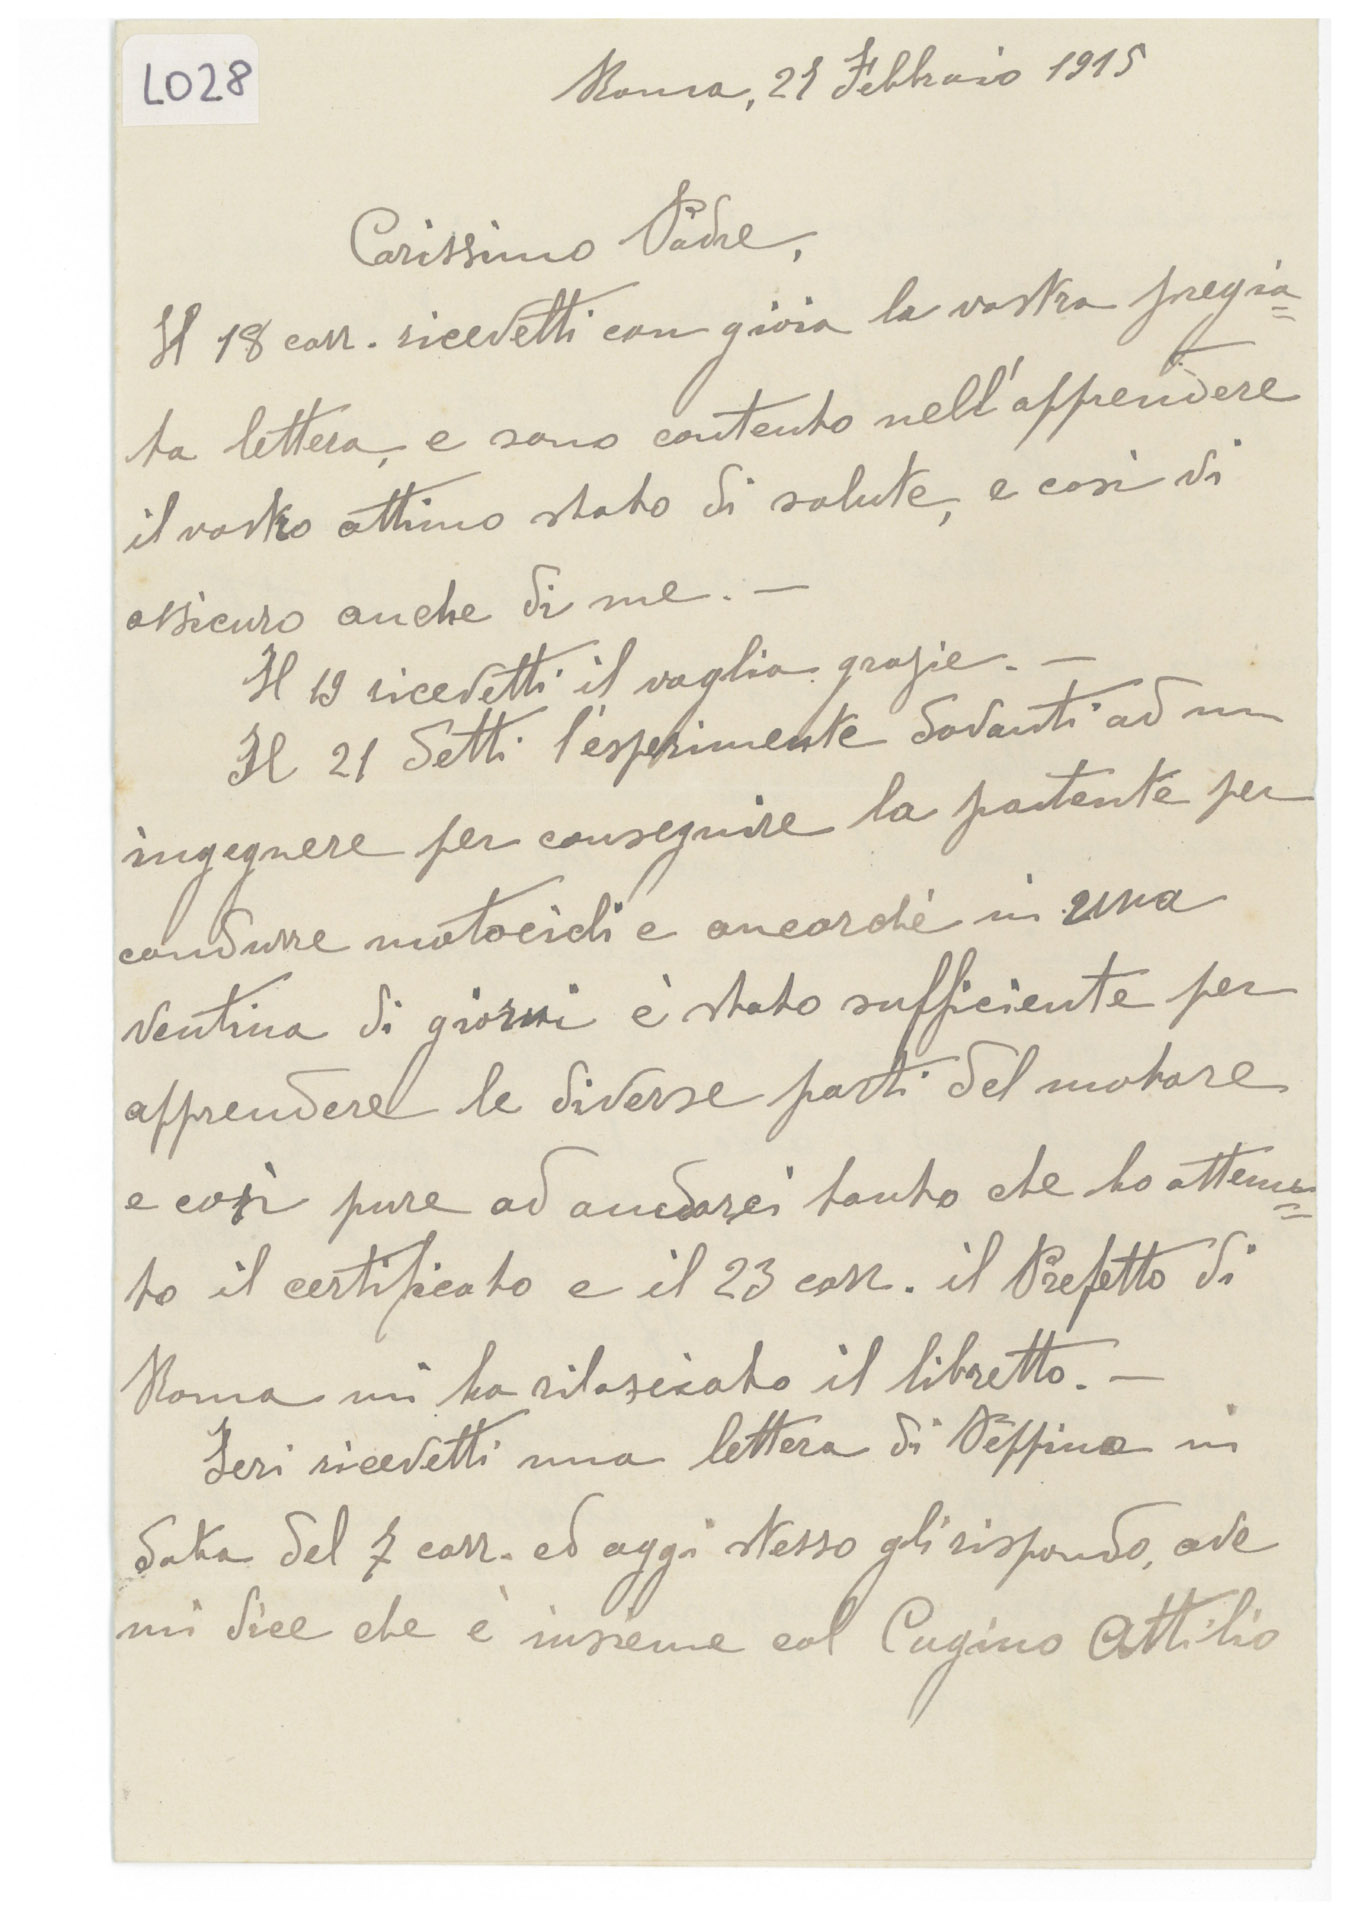 L028
Roma, 27 Febbraio 1915
Carissimo Padre,
Il 18 corr. ricevetti con gioia la vostra pregia=
ta lettera, e sono contento nell'apprendere
il vostro ottimo stato di salute, e così vi
assicuro anche di me. —
Il 19 ricevetti il vaglia grazie. —
Il 21 detti l'esperimente davanti ad un
ingegnere per conseguire la patente per
condurre motocicli e ancorchè in una
ventina di giorni è stato sufficiente per
apprendere le diverse parti del motore
e così pure ad andarci tanto che ho attenu=
to il certificato e il 23 corr. il Prefetto di
Roma mi ha rilasciato il libretto. —
Ieri ricevetti una lettera di Peppino in
data del 7 corr. ed oggi stesso gli rispondo, ove
mi dice che è insieme col Cugino Attilio